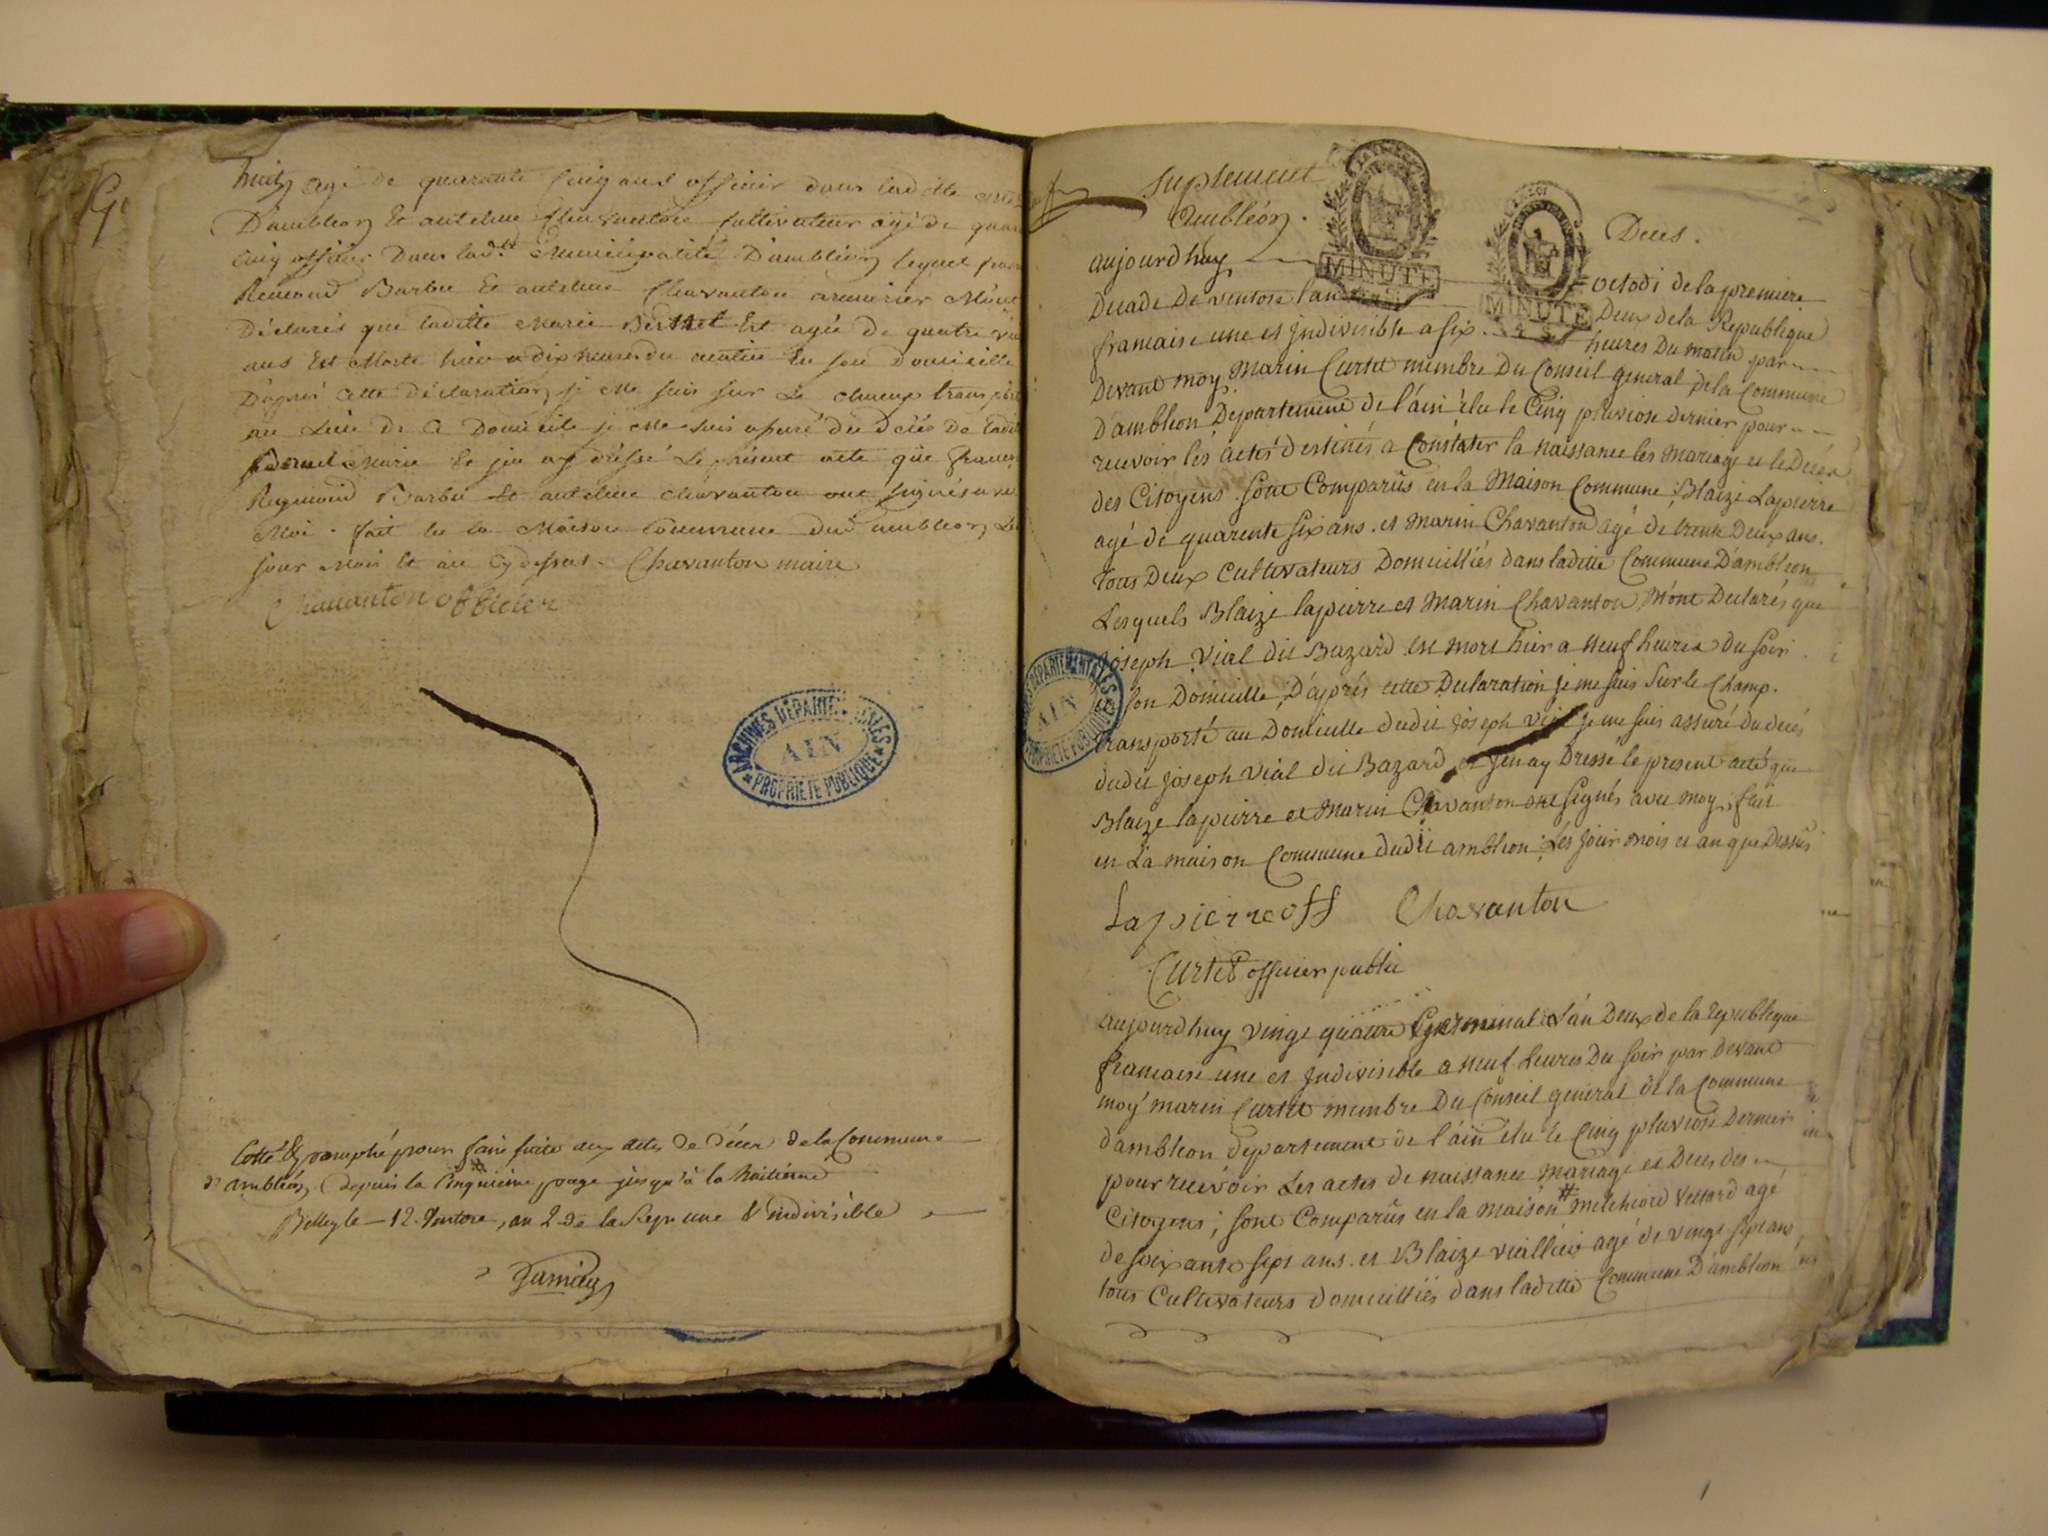 huitz agé de quarante Cinq ans officier dans ladite
D'ambleon Et antelme Chavanton Cultivateur agé de
Cinq officier Dans lad.te Municipalité D'ambleon lequel
Remond Barbu Et antelme Chavanton
Déclarés que laditte Marie Berthet Est agée de quatre
ans Est Morte hier a dix heures du matin En son Domicille
D'après Cette Déclaration je Me suis sur Le Champ
au Lieu de Ce Domicile je Me suis du Décés De
Marie Et jen ay dréssé Le présent acte que
Reymond Barbu Et antelme Chavanton ont signés
Moi. fait En la Maison Commune dud. ambleon Le
jour Mois Et an Cydessus. Chavanton maire
Chavanton officier
Cotté & paraphé pour faire suite aux actes de décès de la Commune
d'ambléon, depuis la Cinquieme page jusqu'à la huitieme
Belley le 12. Ventose, an 2 de la Rep. une & indivisible
ARCHIVES DÉPARTEMENTALES
AIN
PROPRIÉTÉ PUBLIQUE
Suplement
Ambléon.
Deces.
MINUTE
MINUTE
aujourdhuy octodi de la premiere
Decade De ventose l'an Deux de la Republique
francaise une et Indivisible a six heures Du matin par
Devant moy Marin Curtet membre Du Conseil general de la Commune
D'ambleon Departement de l'ain élu le Cinq pluviose dernier pour
recevoir les actes destinés a Constater la naissance les mariage et le Décés
des Citoyens. sont Comparûs en la Maison Commune Blaize Lapierre
agé de quarente six ans. et Marin Chavanton agé de trente Deux ans.
tous Deux Cultivateurs Domicilliés dans laditte Commune D'ambleon
Lesquels Blaize lapierre et Marin Chavanton M'ont Declarés que
Joseph Vial dit Bazard est mort hier a neuf heures du soir
son Domicille, D'après cette Declaration je me suis Sur le Champ.
transporté au Domicille dudit Joseph Vial je me suis assuré du decés
dudit Joseph Vial dit Bazard et jen ay Dressé le present acte que
Blaize lapierre et Marin Chavanton ont signés avec moy, fait
en La maison Commune dudit ambleon Les jour mois et an que Dessus
Lapierre off Chavanton
Curtet officier public
ARCHIVES DÉPARTEMENTALES
AIN
PROPRIÉTÉ PUBLIQUE
aujourdhuy vingt quatre Germinal l'an Deux de la republique
francaise une et Indivisible a neuf heures Du soir par devant
moy marin Curtet membre Du Conseil general de la Commune
d'ambleon departement de l'ain élu le Cinq pluviose dernier
pour recevoir Les actes de naissance mariage et Deces des
Citoyens; sont Comparûs en la maison # melchiord agé
de soixante sept ans. et Blaize agé de vingt sept ans,
tous Cultivateurs domicilliés dans laditte Commune D'ambleon